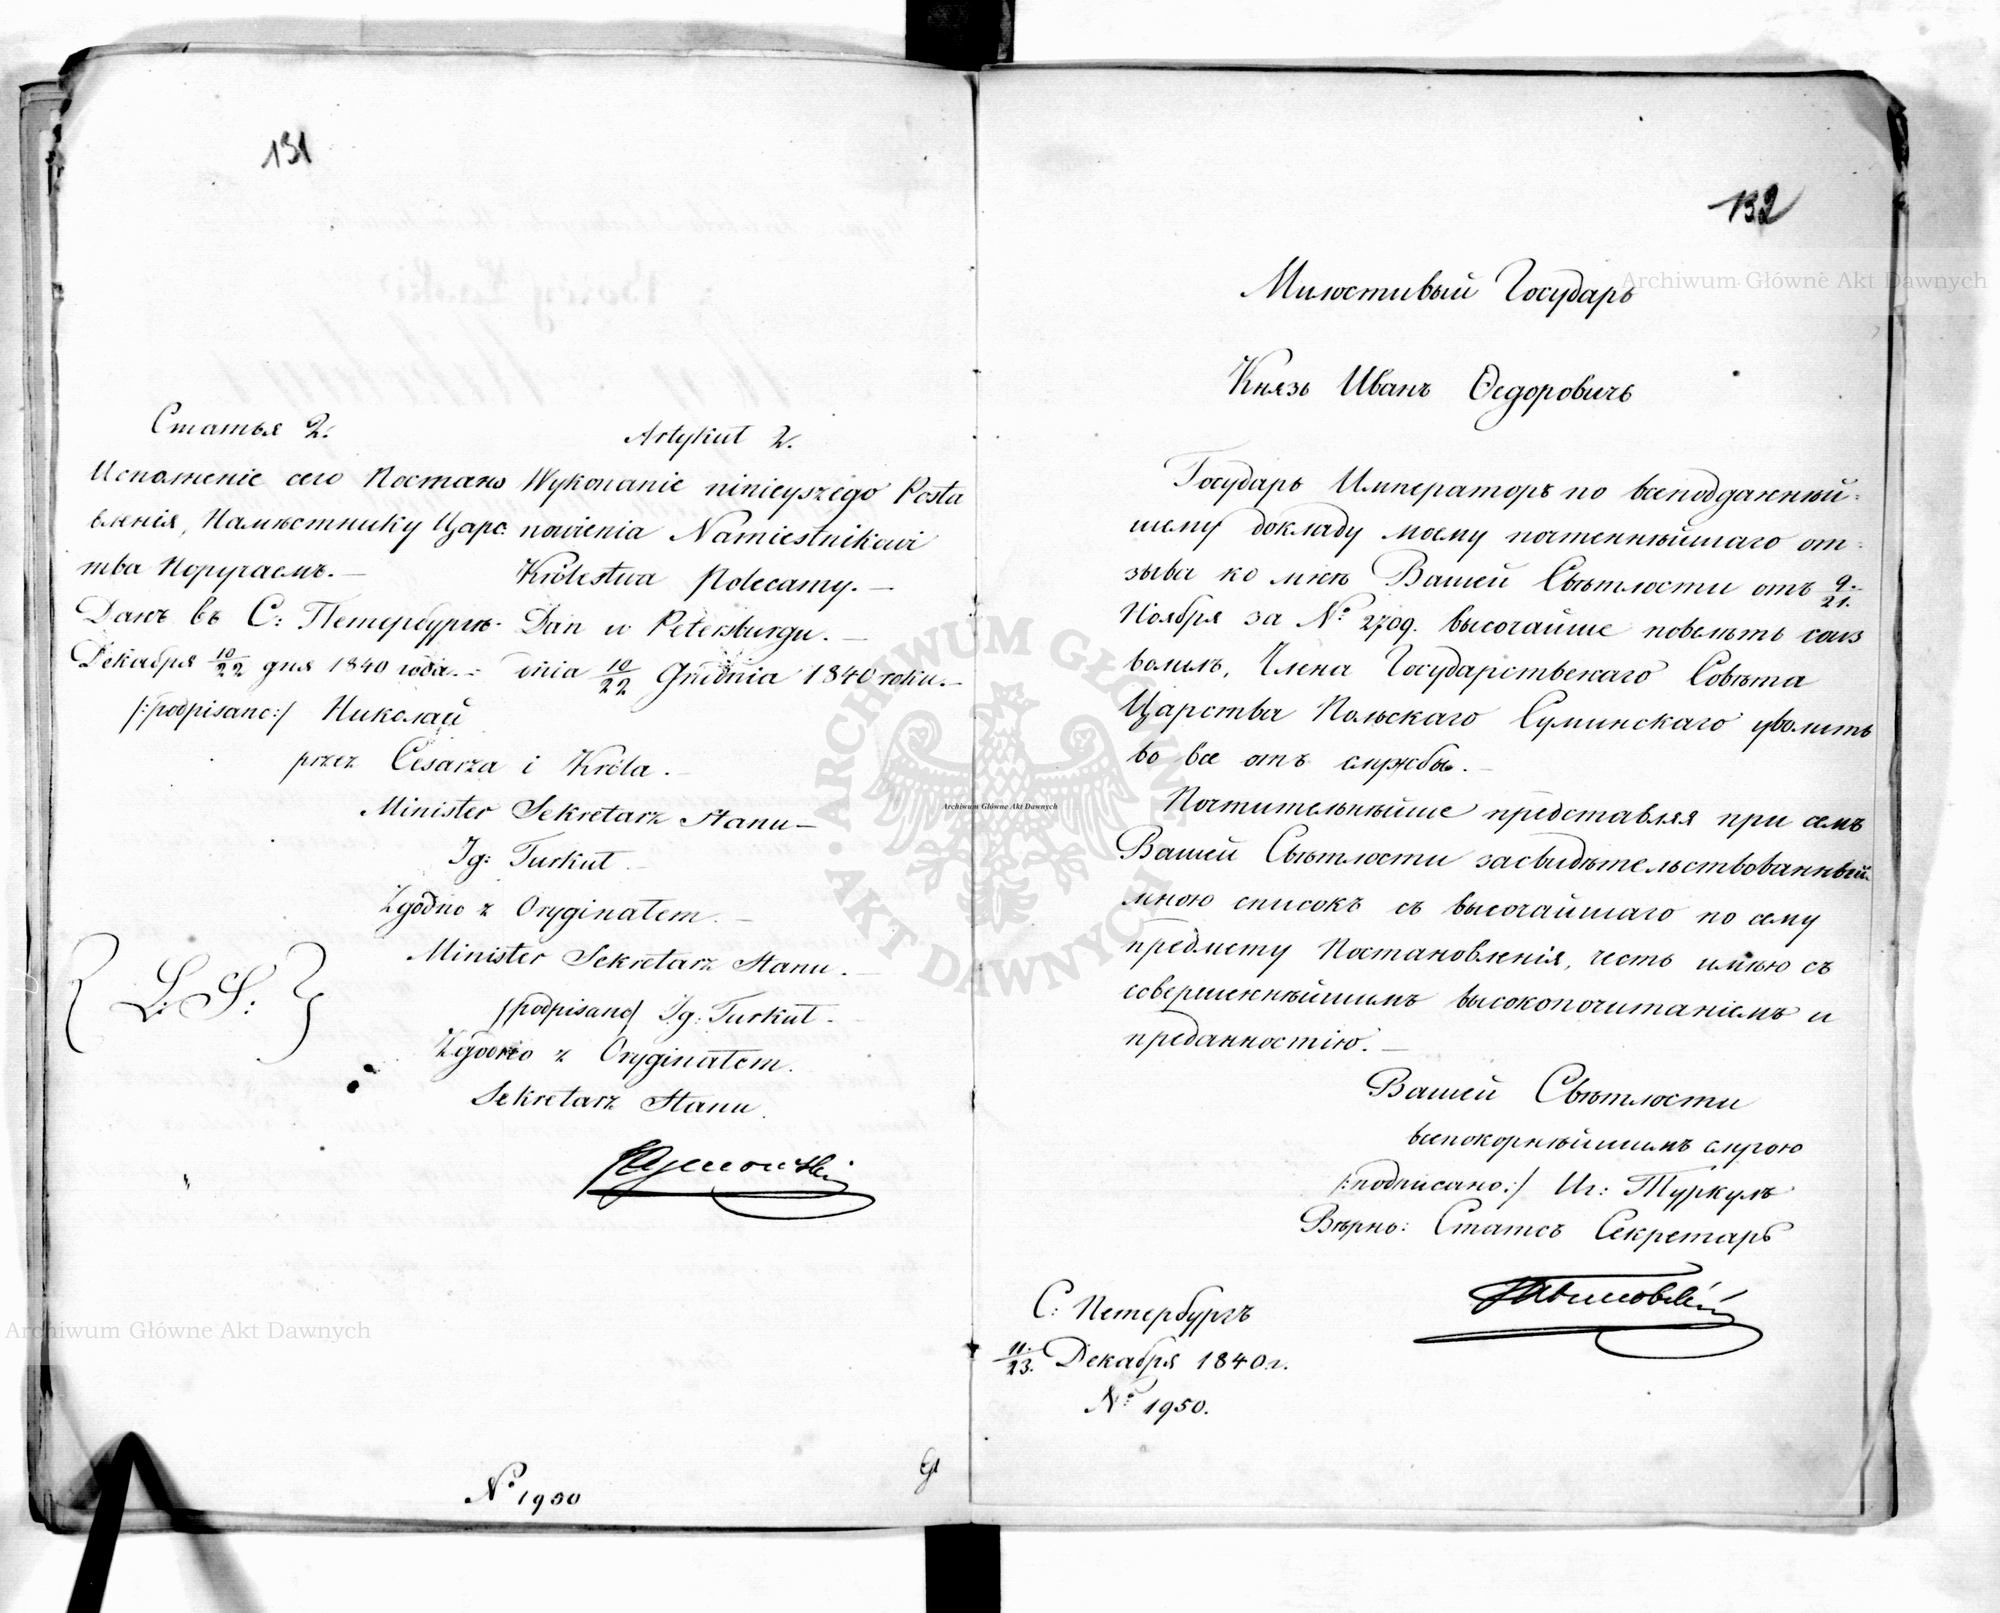 131
Статья 2.
Исполненіе сего Постано
вленія, Намѣстнику Царс
тва Поручаемъ.—
Данъ въ С: Петербургѣ.
Декабря 10/22 дня 1840 года.—
Artykuł 2.
Wykonanie ninieyszego Posta
nowienia Namiestnikowi
Królestwa Polecamy.—
Dan w Petersburgu.—
dnia 10/22 Grudnia 1840 roku.—
/:podpisano:/ Николай
przez Cesarza i Króla.—
Minister Sekretarz Stanu—
Ig: Turkuł.—
Zgodno z Oryginałem.—
Minister Sekretarz Stanu.—
{L: S:}
/podpisano/ Ig: Turkuł.—
Zgodno z Oryginałem.
Sekretarz Stanu.
№ 1950
132
Милостивый Государь
Князь Иванъ Ѳедоровичь
Государь Императоръ по всеподданнѣй:
шему докладу моему почтеннѣйшаго от:
зыва ко мнѣ Вашей Свѣтлости отъ 9/21.
Ноября за № 2709. высочайше повелѣть соиз
волилъ, Члена Государственаго Совѣта
Царства Польскаго Суминскаго уволить
во все отъ службы.—
Почтительнѣйше представляя при семъ
Вашей Свѣтлости засвидѣтельствованный
мною списокъ съ высочайшаго по сему
предмету Постановленія, честь имѣю съ
совершеннѣйшимъ высокопочитаніемъ и
преданностію.—
Вашей Свѣтлости
всепокорнѣйшимъ слугою
/:подписано:/ Иг: Туркулъ
Вѣрно: Статсъ Секретарь
С: Петербургъ
11/23. Декабря 1840 г.
№ 1950.
Archiwum Główne Akt Dawnych
Archiwum Główne Akt Dawnych
Archiwum Główne Akt Dawnych
ARCHIWUM GŁÓWNE AKT DAWNYCH